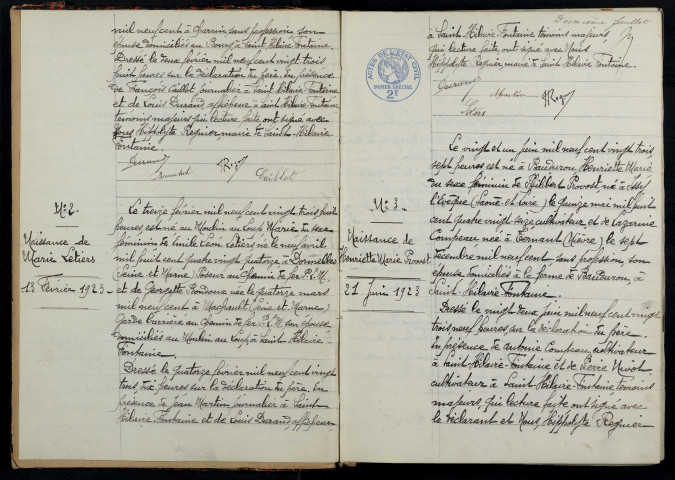 mil neuf cent à Charrin sans profession son
épouse domiciliés au Bourg à Saint Hilaire Fontaine.
Dressé le deux février mil neuf cent vingt trois
huit heures sur la déclaration du père. En présence
de François Caillot journalier à Saint Hilaire Fontaine
et de Louis Durand, afficheur à Saint Hilaire Fontaine
témoins majeurs qui lecture faite, ont signé avec
Nous Hippolyte Regnier, maire de Saint Hilaire
Fontaine.
Durand
Caillot
N° 2.
Naissance de
Marie Létiers
13 Février 1923
Le treize février mil neuf cent vingt trois huit
heures est née au Moulin au Loup Marie du sexe
féminin de Emile Léon Létiers, né le neuf avril
mil huit cent quatre vingt quatorze à
(Seine et Marne) Poseur au Chemin de fer P.L.M.
et de Georgette Rondonne née le quatorze mars
mil neuf cent à Machault (Seine et Marne)
Garde barrière au chemin de fer P.L.M. son épouse
domiciliés au Moulin au Loup à Saint Hilaire
Fontaine.
Dressé le quatorze février mil neuf cent vingt
trois, dix heures sur la déclaration du père, En
présence de Jean Martin, journalier à Saint
Hilaire Fontaine et de Louis Durand, afficheur
Deuxième feuillet
à Saint Hilaire Fontaine témoins majeurs
qui lecture faite, ont signé avec Nous
Hippolyte Regnier, maire de Saint Hilaire Fontaine.
ACTES DE L'ÉTAT CIVIL
PAPIER SPÉCIAL
2F
Durand
Martin
N° 3
Naissance de
Henriette Marie Provost
21 Juin 1923
Le vingt et un juin mil neuf cent vingt trois,
sept heures est née à Bauduron, Henriette Marie
du sexe féminin de Philbert Provost, né à Issy
l'Evêque (Saône et Loire) le quinze mai mil huit
cent quatre vingt seize cultivateur et de Lazarine
Compeau née à Ternant (Nièvre) le sept
décembre mil neuf cent sans profession, son
épouse domiciliés à la ferme de Bauduron, à
Saint Hilaire Fontaine.
Dressé le vingt deux juin mil neuf cent vingt
trois neuf heures sur la déclaration du père.
En présence de Antonie Compeau cultivateur
à Saint Hilaire Fontaine et de Pierre Nivot
cultivateur à Saint Hilaire Fontaine témoins
majeurs, qui lecture faite ont signé avec
le déclarant et Nous, Hippolyte Regnier